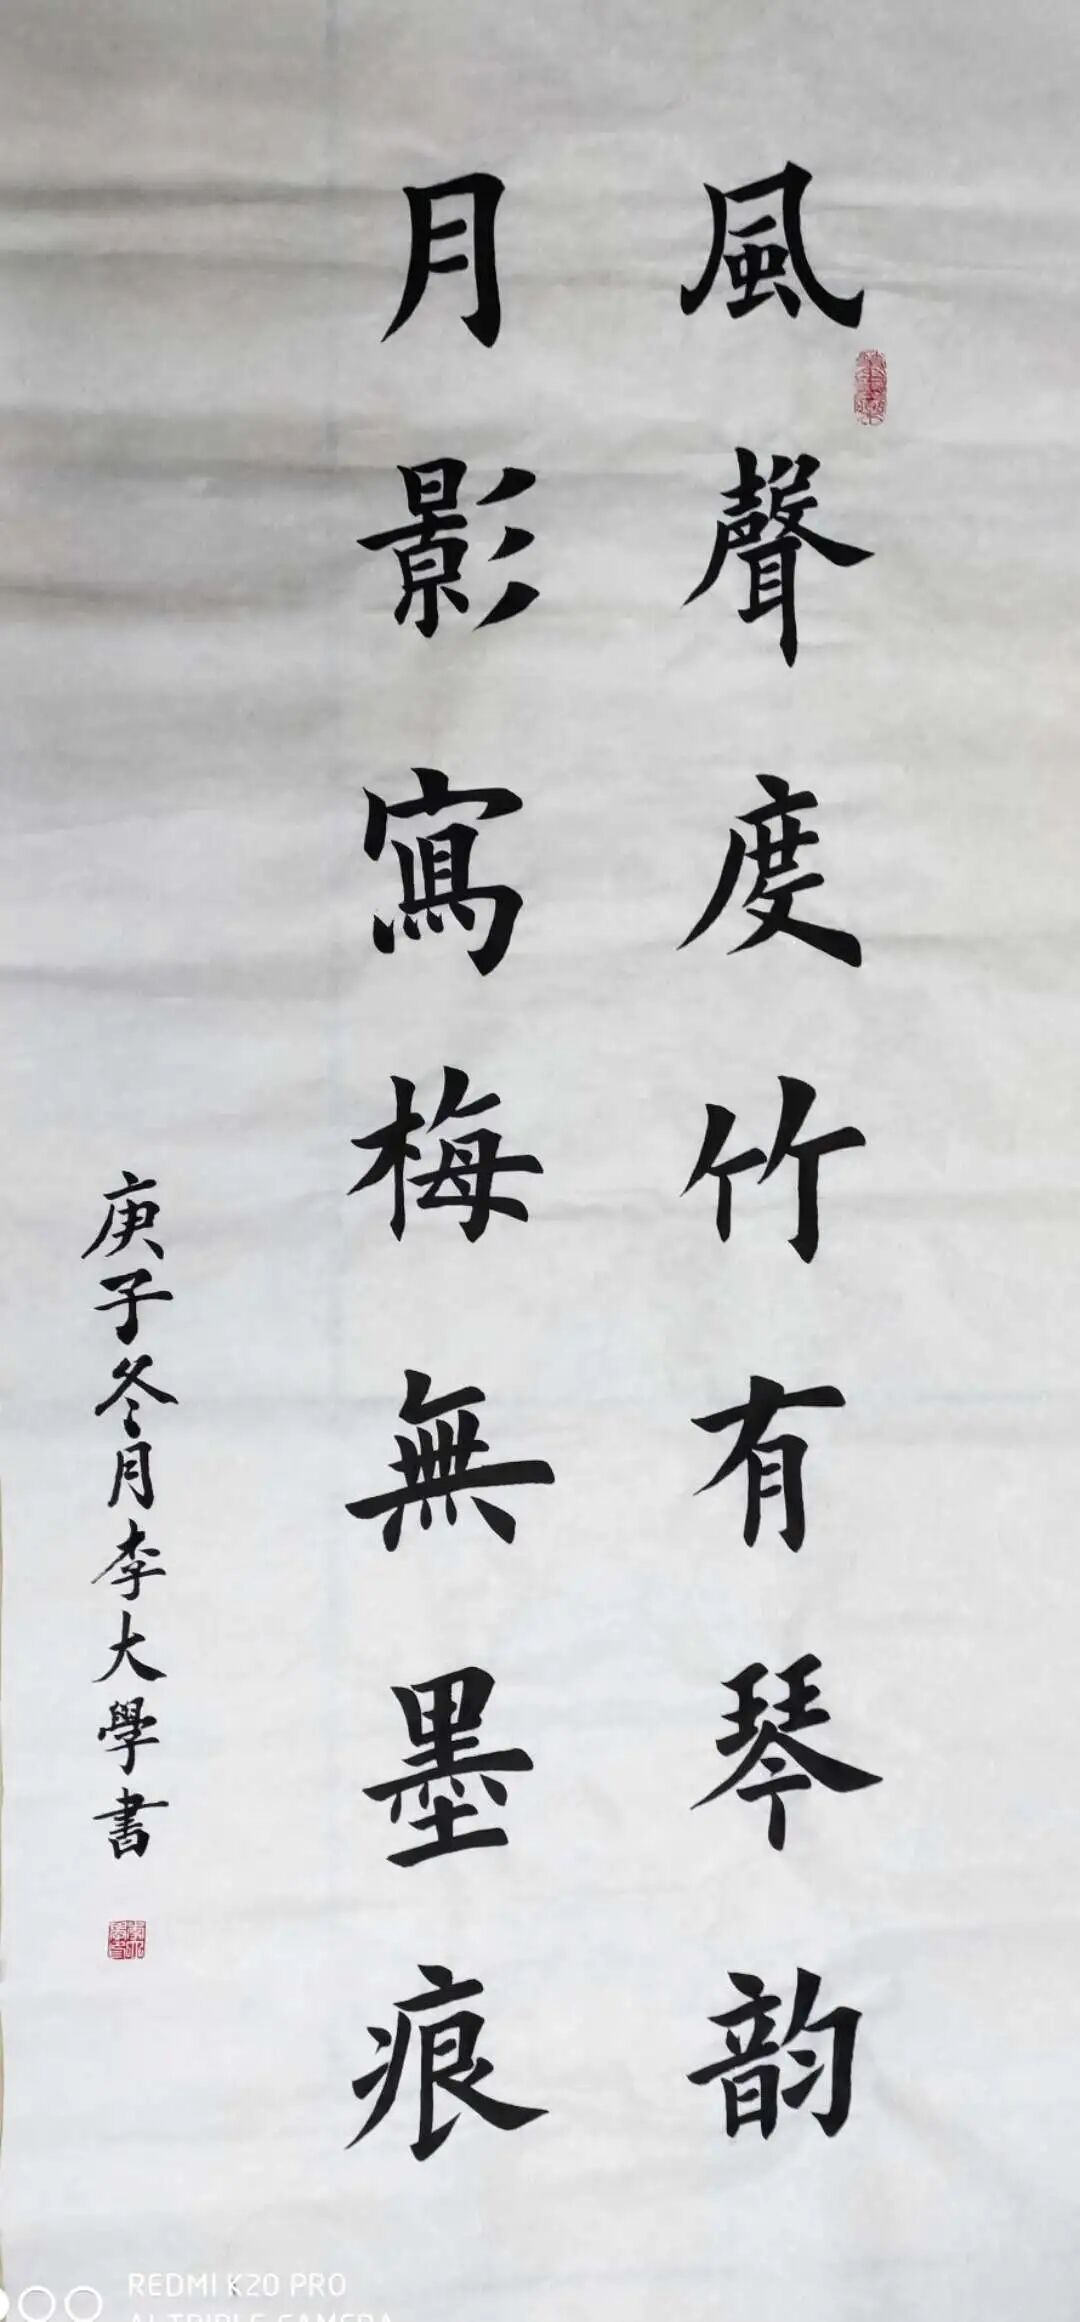 風聲度竹有琴韵
月影寫梅無墨痕
庚子冬月李大學書
REDMI K20 PRO
AI TRIPLE CAMERA